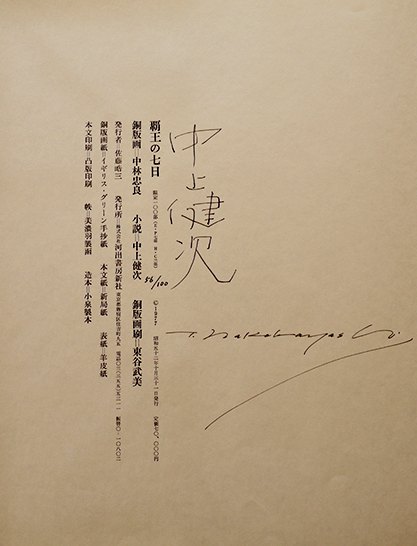 中上健次
56/100
T. Nakabayashi
覇王の七日
限定一〇〇部
©1977
昭和五十二年十月三十一日発行
定価七〇、〇〇〇円
銅版画＝中林忠良 小説＝中上健次 銅版画刷＝東谷武美
発行者＝佐藤皓三 発行所＝株式会社河出書房新社
銅版画紙＝イギリス・グリーン手抄紙 本文紙＝新局紙 表紙＝羊皮紙
本文印刷＝凸版印刷 帙＝美濃羽製函 造本＝小泉製本